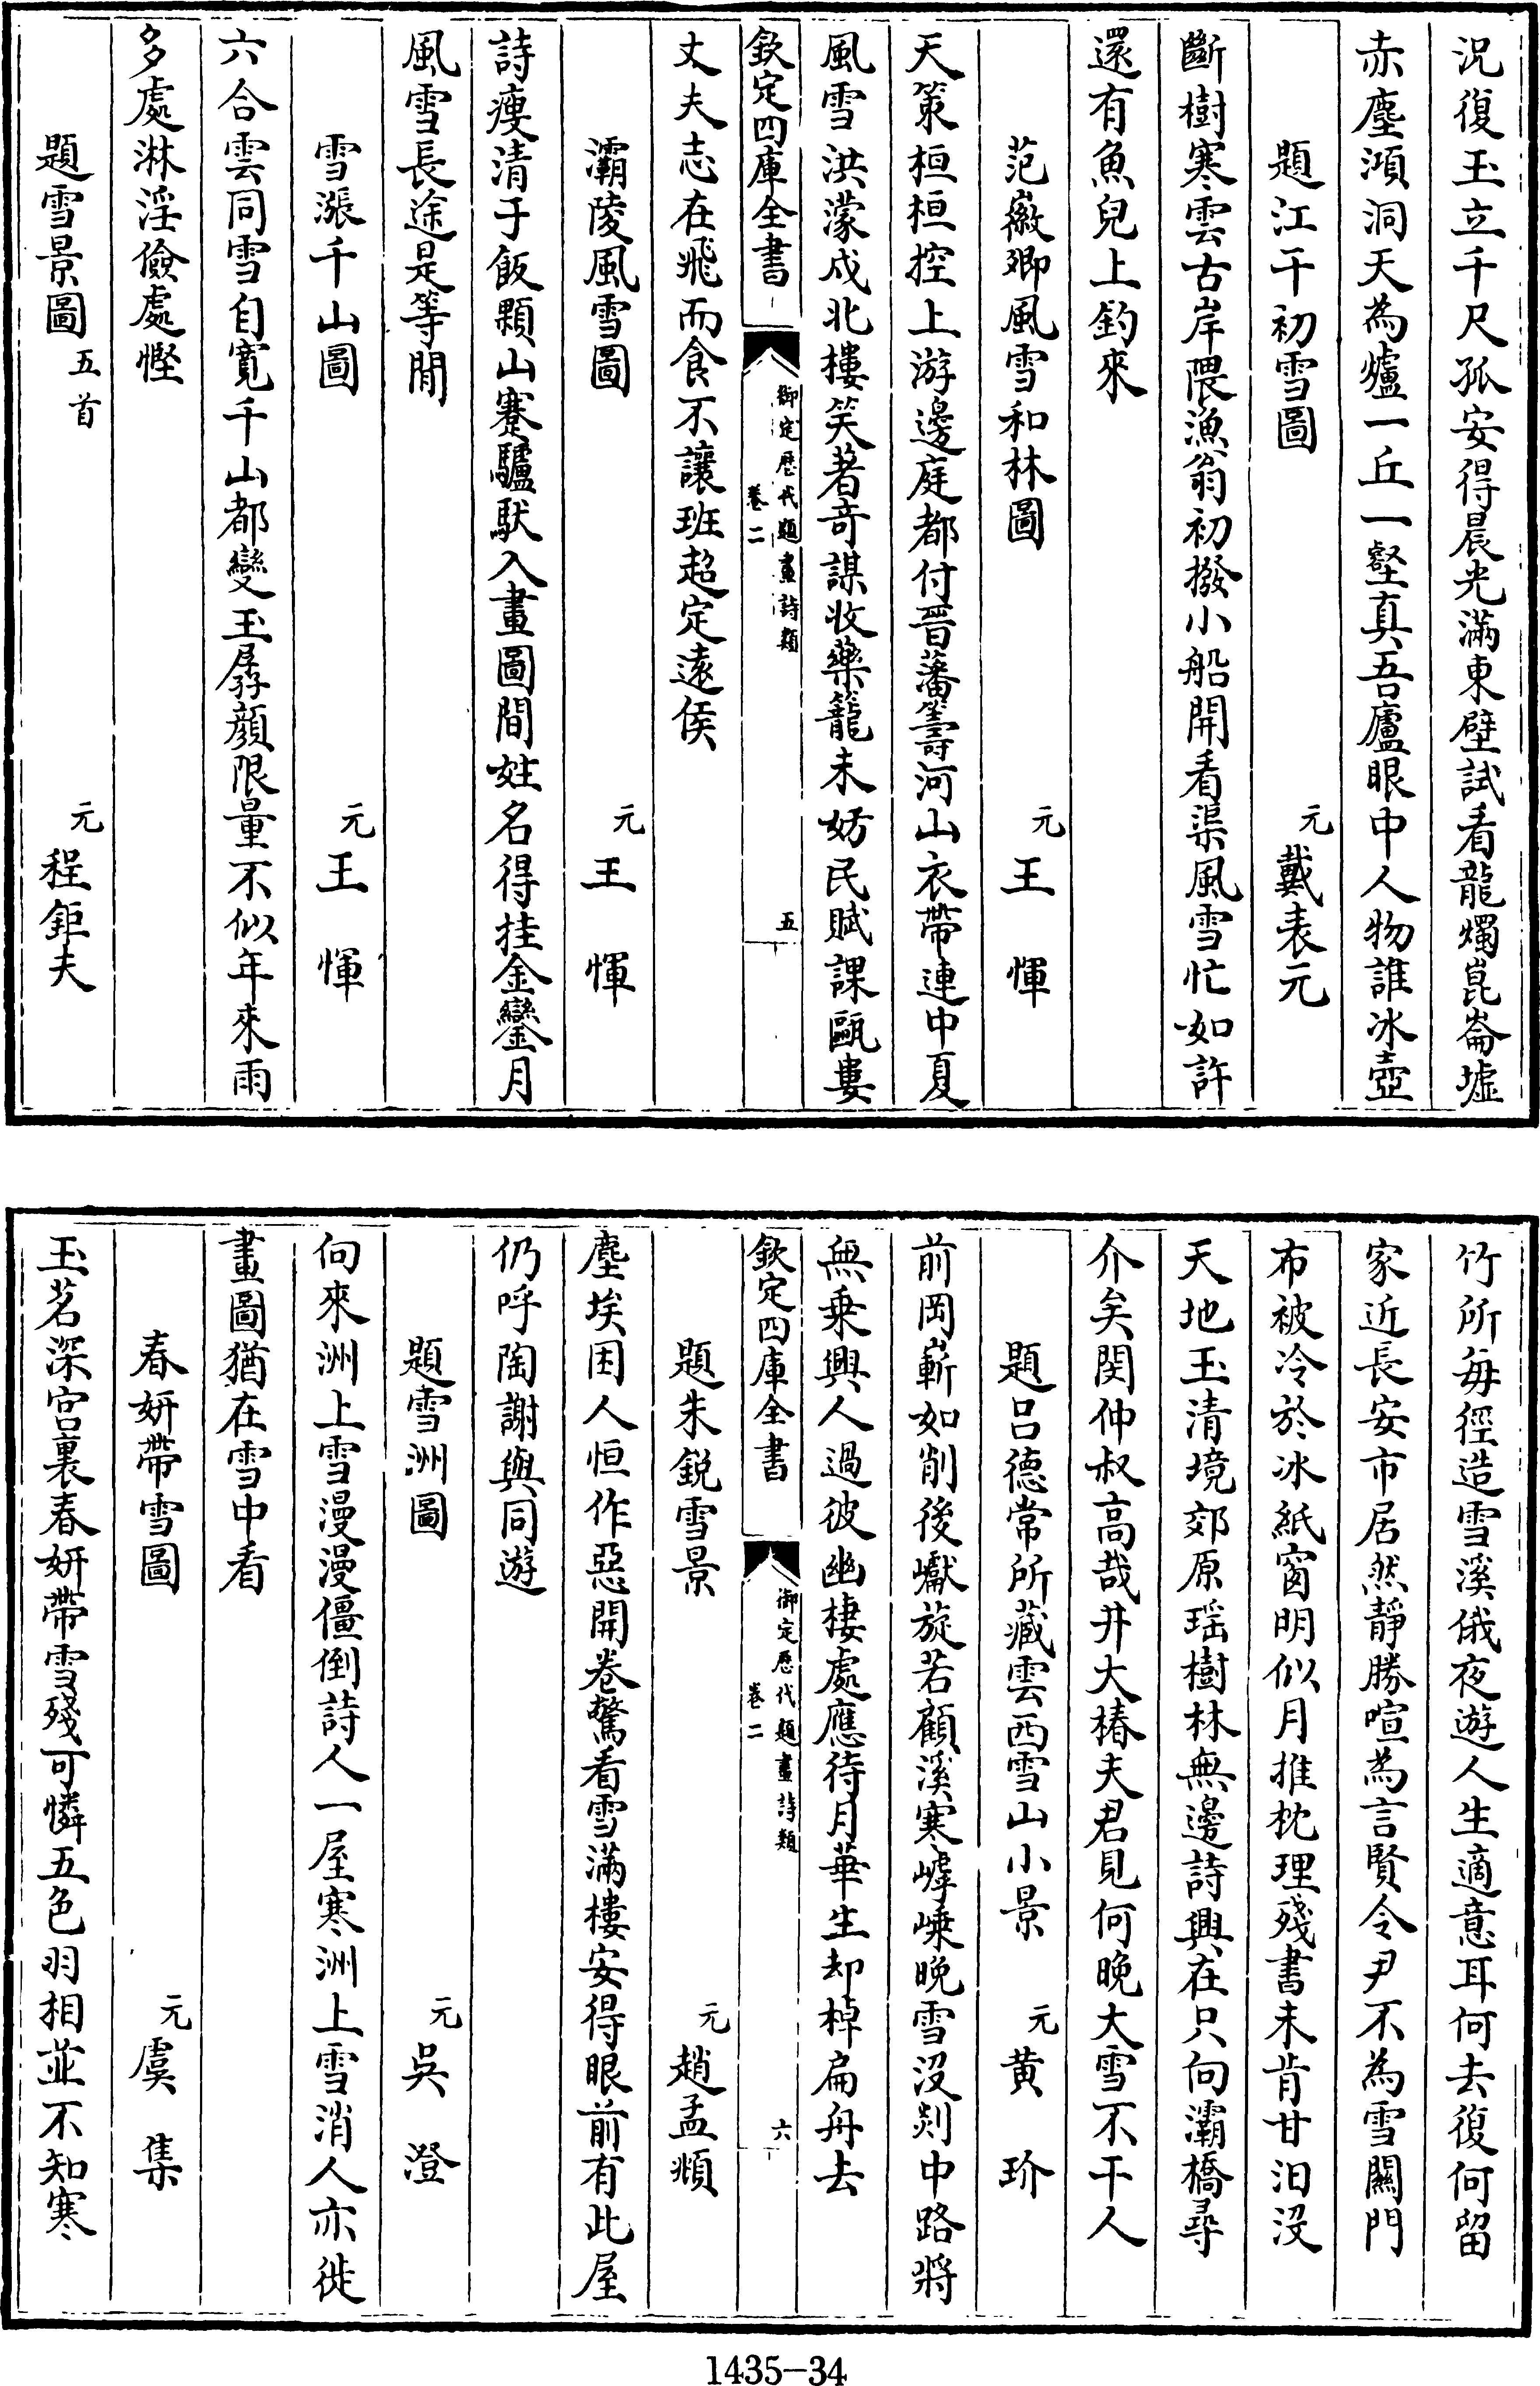 況復玉立千尺孤安得晨光滿東壁試看龍燭崑崙墟
赤塵澒洞天為爐一丘一壑真吾廬眼中人物誰冰壺
題江干初雪圖 元 戴表元
斷樹寒雲古岸隈漁翁初撥小船開看渠風雪忙如許
還有魚兒上釣來
范徽卿風雪和林圖 元 王惲
天策桓桓控上游邊庭都付晉藩籌河山衣帶連中夏
風雪洪濛成北樓笑著奇謀收藥籠未妨民賦課甌婁
欽定四庫全書 御定歷代題畫詩類 卷二 五
丈夫志在飛而食不讓班超定遠侯
灞陵風雪圖 元 王惲
詩瘦清于飯顆山蹇驢馱入畫圖間姓名得挂金鑾月
風雪長途是等閒
雪漲千山圖 元 王惲
六合雲同雪自寬千山都變玉孱顏限量不似年來雨
多處淋淫儉處慳
題雪景圖 五首 元 程鉅夫
竹所毎徑造雪溪俄夜遊人生適意耳何去復何留
家近長安市居然靜勝喧為言賢令尹不為雪關門
布被冷於冰紙窗明似月推枕理殘書未肯甘汩沒
天地玉清境郊原瑶樹林無邊詩興在只向灞橋尋
介矣閔仲叔高哉井大椿夫君見何晚大雪不干人
題呂德常所藏雲西雪山小景 元 黃玠
前岡嶄如削後巘旋若顧溪寒崢嶸晚雪沒剡中路將
無乗興人過彼幽棲處應待月華生却棹扁舟去
欽定四庫全書 御定歷代題畫詩類 卷二 六
題朱銳雪景 元 趙孟頫
塵埃困人恒作惡開卷驚看雪滿樓安得眼前有此屋
仍呼陶謝與同遊
題雪洲圖 元 吳澄
向來洲上雪漫漫僵倒詩人一屋寒洲上雪消人亦徙
畫圖猶在雪中看
春妍帶雪圖 元 虞集
玉茗深宫裏春妍帶雪殘可憐五色羽相並不知寒
1435-34